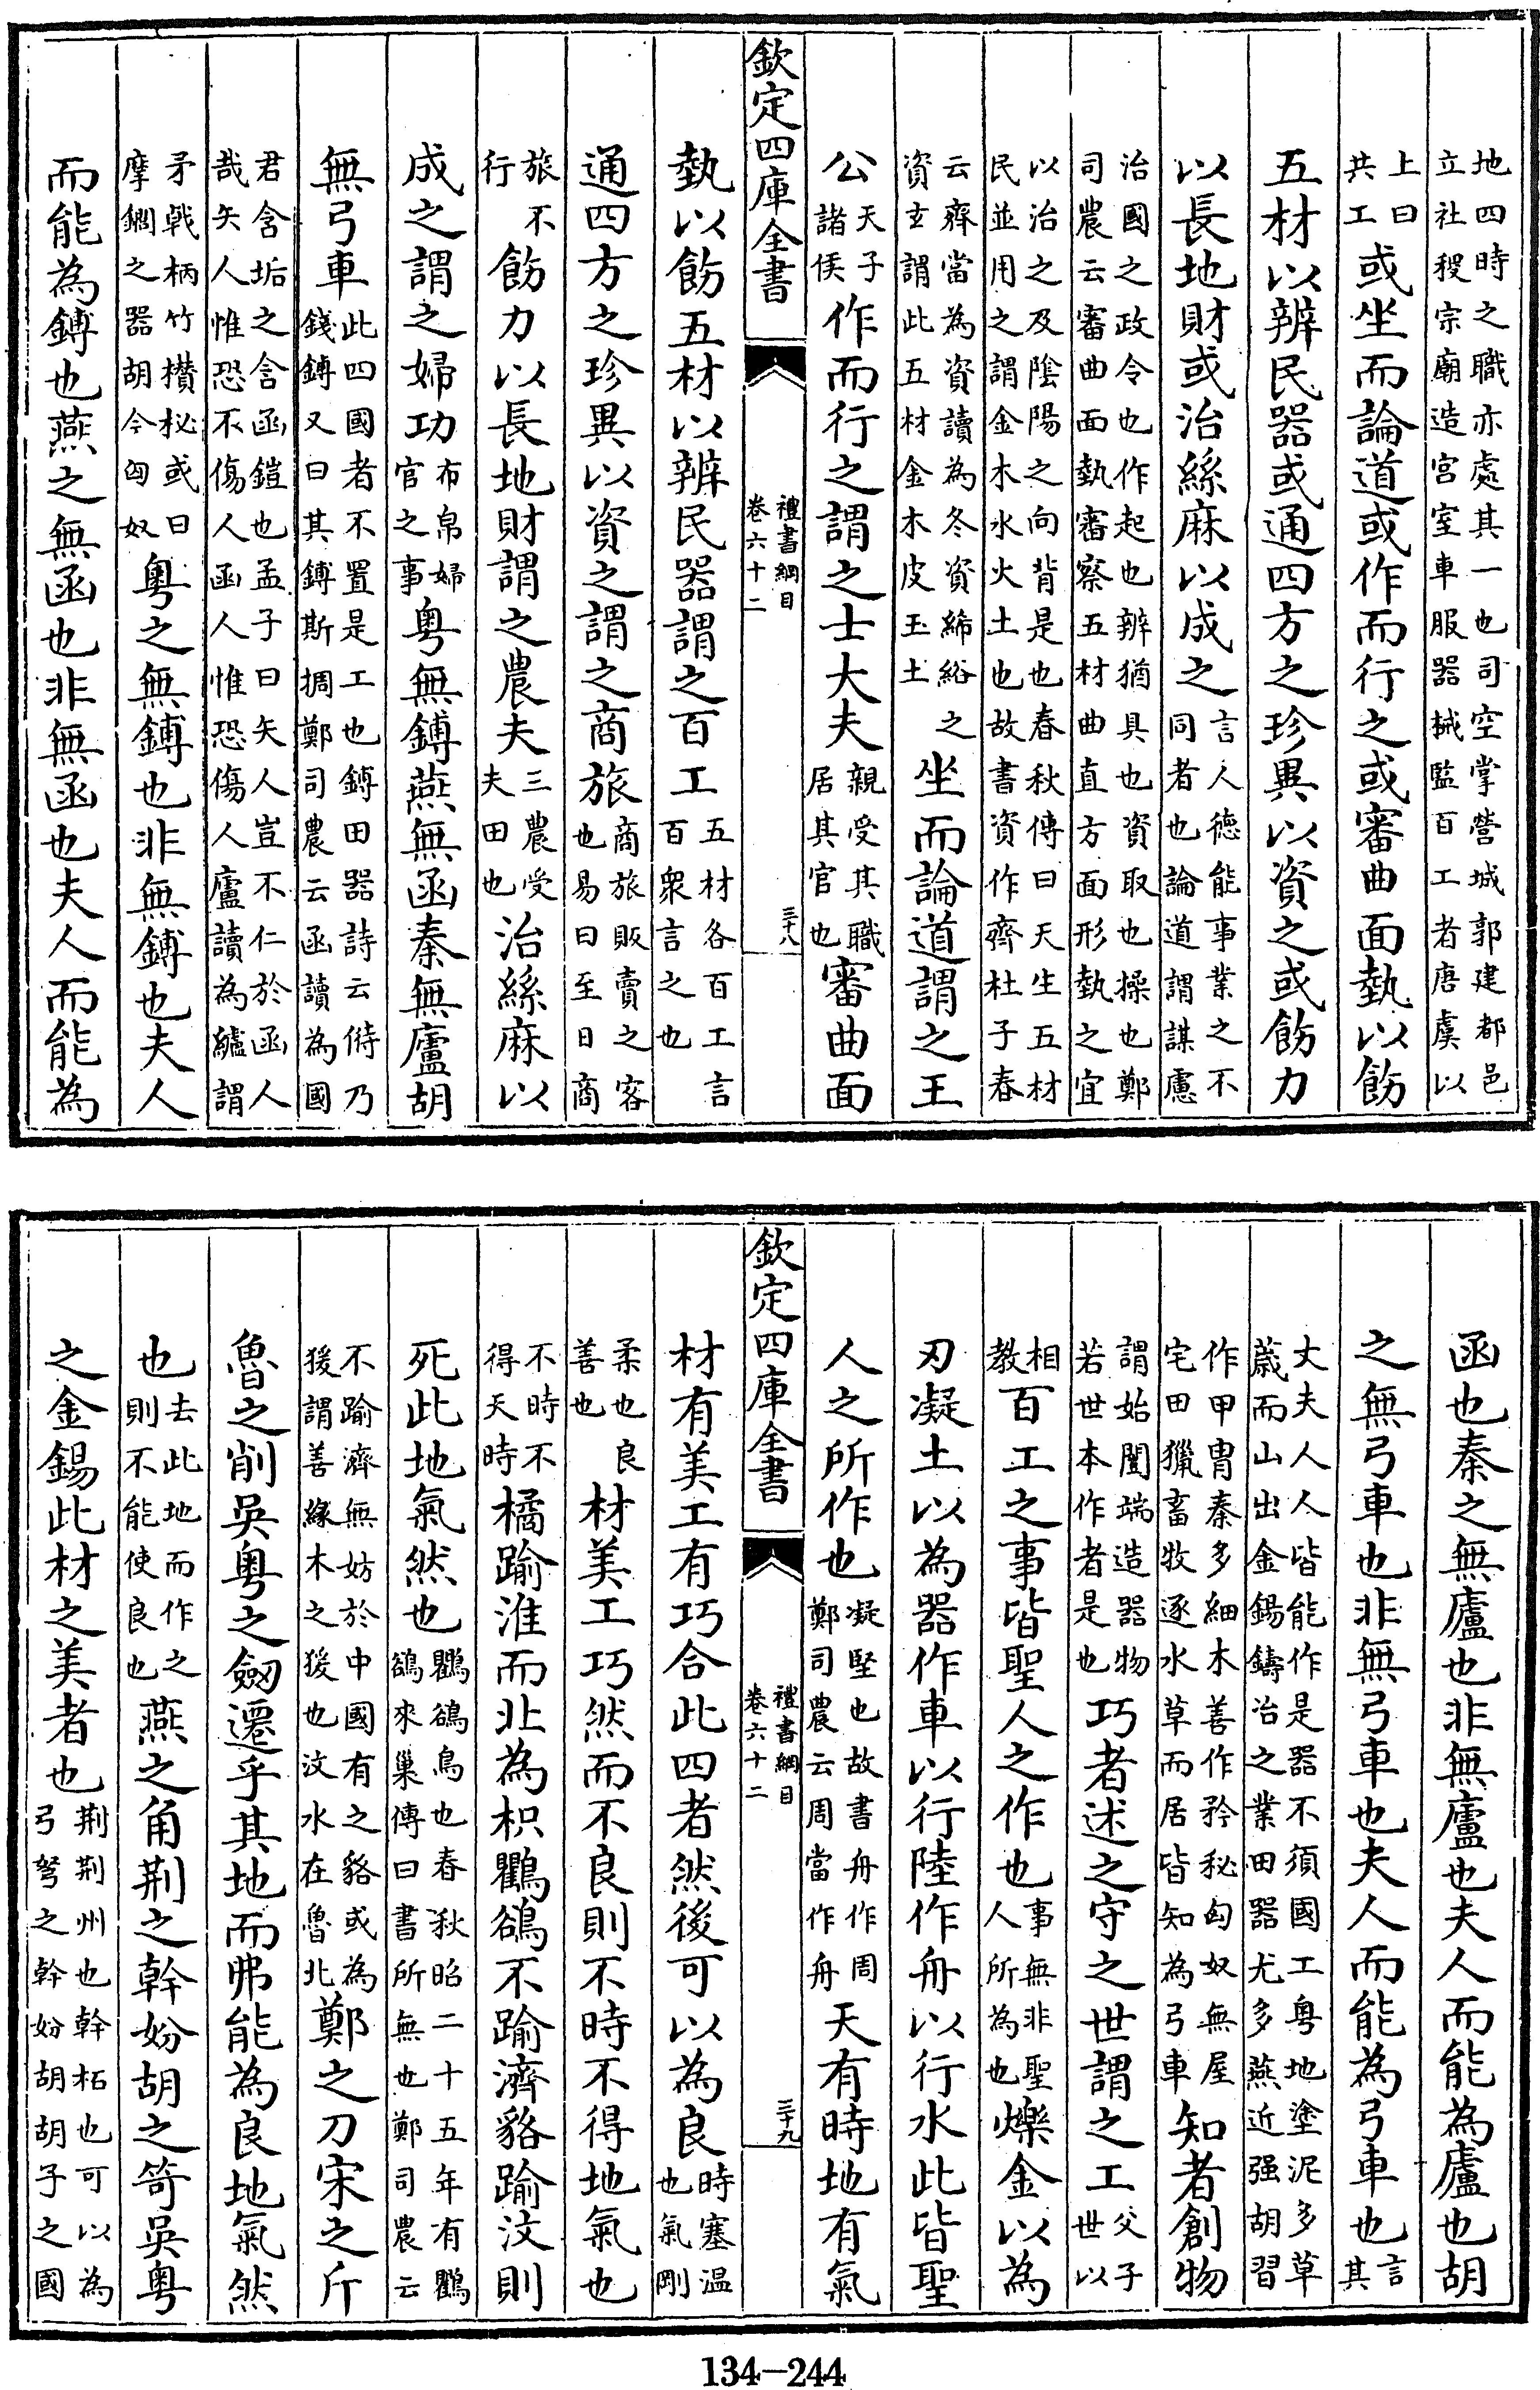 地四時之職亦處其一也司空掌營城郭建都邑
立社稷宗廟造宮室車服器械監百工者唐虞以
上曰共工或坐而論道或作而行之或審曲面埶以飭
五材以辨民器或通四方之珍異以資之或飭力
以長地財或治絲麻以成之言人德能事業之不同者也論道謂謀慮
治國之政令也作起也辨猶具也資取也操也鄭
司農云審曲面埶審察五材曲直方面形埶之宜
以治之及陰陽之向背是也春秋傳曰天生五材
民並用之謂金木水火土也故書資作齊杜子春
云齊當為資讀為冬資絺綌之資玄謂此五材金木皮玉土坐而論道謂之王
公天子諸侯作而行之謂之士大夫親受其職居其官也審曲面
欽定四庫全書 禮書綱目 卷六十二 三十八
埶以飭五材以辨民器謂之百工五材各百工言百衆言之也
通四方之珍異以資之謂之商旅商旅販賣之客也易曰至日商
旅不行飭力以長地財謂之農夫三農受夫田也治絲麻以
成之謂之婦功布帛婦官之事粵無鎛燕無函秦無廬胡
無弓車此四國者不置是工也鎛田器詩云偫乃錢鎛又曰其鎛斯搁鄭司農云函讀為國
君含垢之含函鎧也孟子曰矢人豈不仁於函人
哉矢人惟恐不傷人函人惟恐傷人廬讀為纑謂
矛戟柄竹欑柲或曰摩鐧之器胡今匈奴粵之無鎛也非無鎛也夫人
而能為鎛也燕之無函也非無函也夫人而能為
函也秦之無廬也非無廬也夫人而能為廬也胡
之無弓車也非無弓車也夫人而能為弓車也言其
丈夫人人皆能作是器不須國工粵地塗泥多草
薉而山出金錫鑄冶之業田器尤多燕近强胡習
作甲胄秦多細木善作矜柲匈奴無屋宅田獵畜牧逐水草而居皆知為弓車知者創物
謂始闓端造器物若世本作者是也巧者述之守之世謂之工父子世以
相教百工之事皆聖人之作也事無非聖人所為也爍金以為
刃凝土以為器作車以行陸作舟以行水此皆聖
人之所作也凝堅也故書舟作周鄭司農云周當作舟天有時地有氣
欽定四庫全書 禮書綱目 卷六十二 三十九
材有美工有巧合此四者然後可以為良時塞溫也氣剛
柔也良善也材美工巧然而不良則不時不得地氣也
不時不得天時橘踰淮而北為枳鸜鵒不踰濟貉踰汶則
死此地氣然也鸜鵒鳥也春秋昭二十五年有鸜鵒來巢傳曰書所無也鄭司農云
不踰濟無妨於中國有之貉或為猨謂善緣木之猨也汶水在魯北鄭之刀宋之斤
魯之削吳粵之劒遷乎其地而弗能為良地氣然
也去此地而作之則不能使良也燕之角荆之幹妢胡之笴吳粵
之金錫此材之美者也荆荆州也幹柘也可以為弓弩之幹妢胡胡子之國
134-244